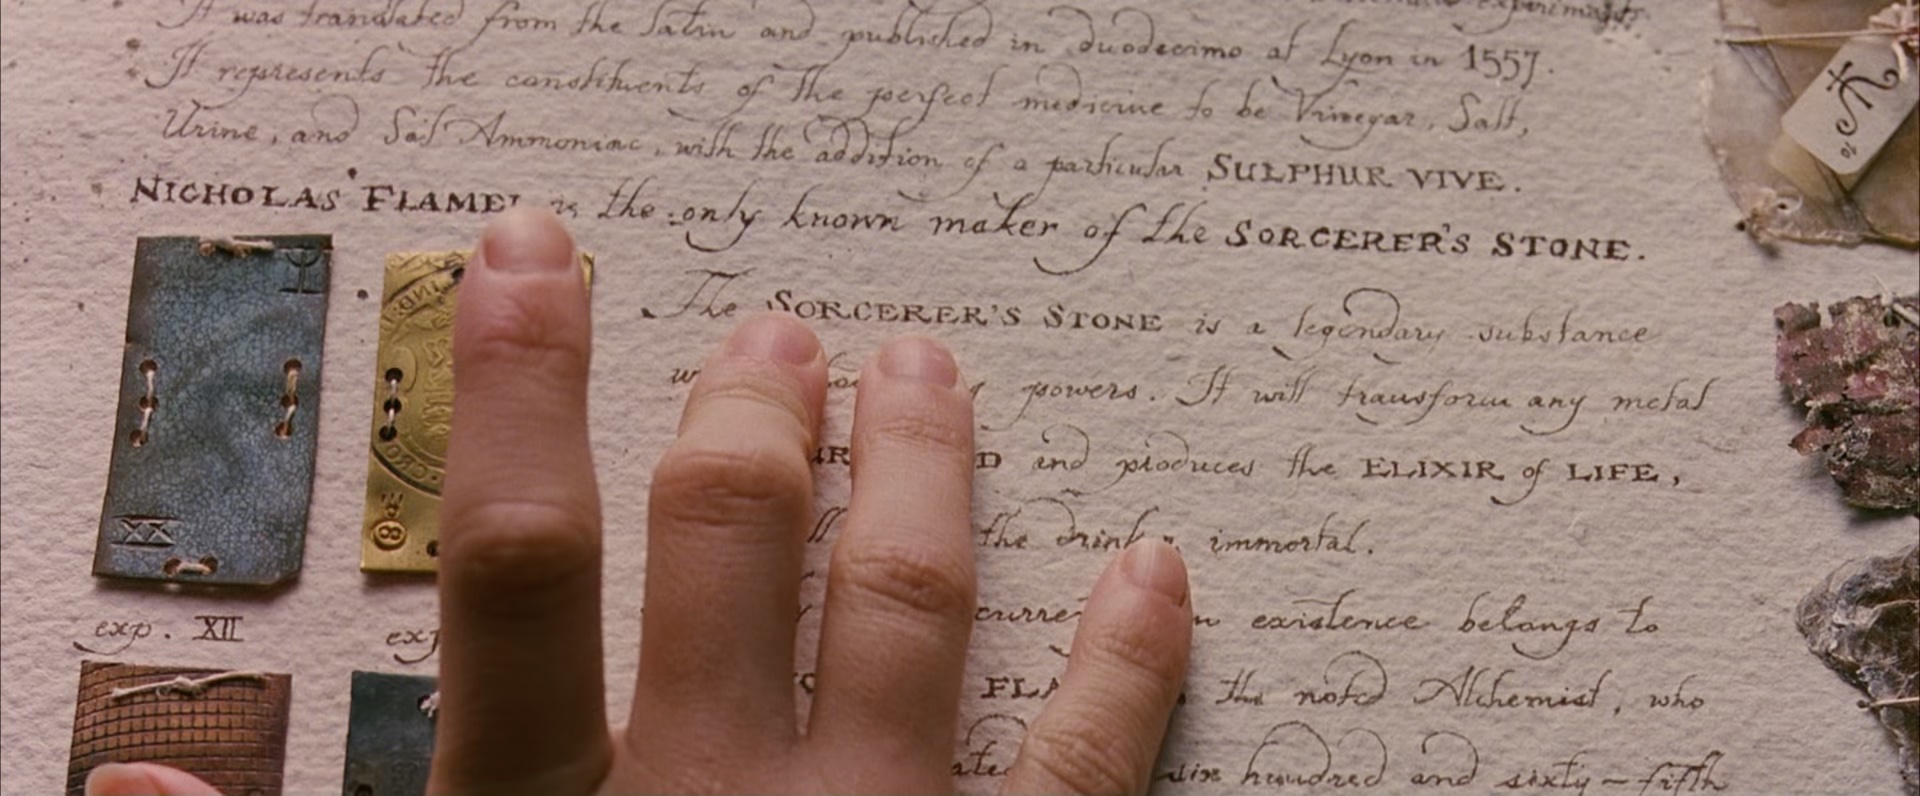 experiments.
It was translated from the Latin and published in duodecimo at Lyon in 1557.
It represents the constituents of the perfect medicine to be Vinegar, Salt,
Urine, and Sal Ammoniac, with the addition of a particular SULPHUR VIVE.
NICHOLAS FLAMEL is the only known maker of the SORCERER'S STONE.
The SORCERER'S STONE is a legendary substance
powers. It will transform any metal
and produces the ELIXIR of LIFE,
the drinker immortal.
existence belongs to
the noted Alchemist, who
six hundred and sixty-fifth
XX
8
exp. XII